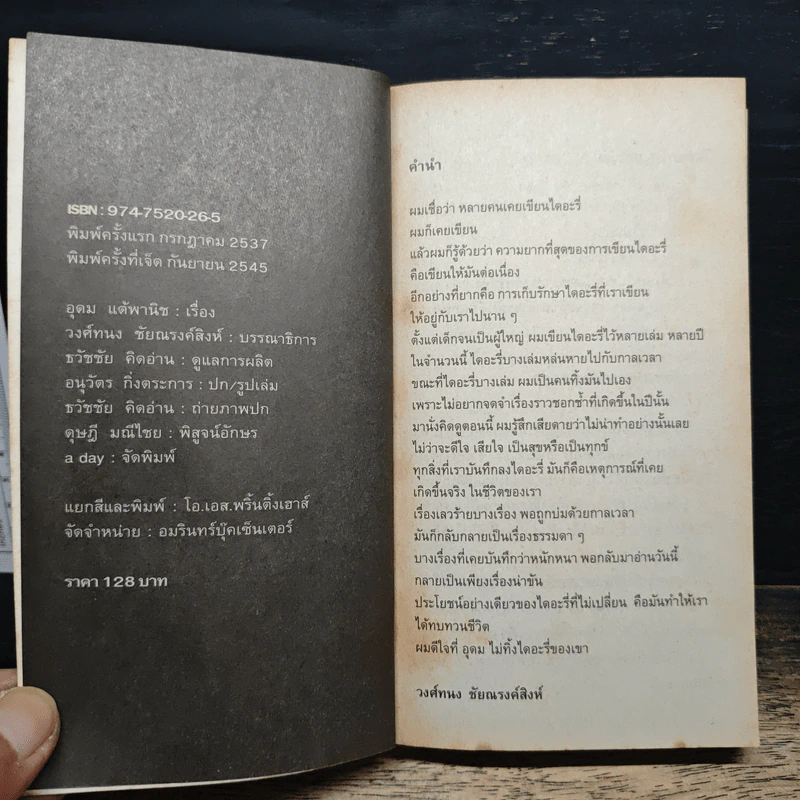 ISBN : 974-7520-26-5
พิมพ์ครั้งแรก กรกฎาคม 2537
พิมพ์ครั้งที่เจ็ด กันยายน 2545
อุดม แต้พานิช : เรื่อง
วงศ์ทนง ชัยณรงค์สิงห์ : บรรณาธิการ
ธวัชชัย คิดอ่าน : ดูแลการผลิต
อนุวัตร กิ่งตระการ : ปก/รูปเล่ม
ธวัชชัย คิดอ่าน : ถ่ายภาพปก
ดุษฎี มณีไชย : พิสูจน์อักษร
a day : จัดพิมพ์
แยกสีและพิมพ์ : โอ.เอส.พริ้นติ้งเฮาส์
จัดจำหน่าย : อมรินทร์บุ๊คเซ็นเตอร์
ราคา 128 บาท
คำนำ
ผมเชื่อว่า หลายคนเคยเขียนไดอะรี่
ผมก็เคยเขียน
แล้วผมก็รู้ด้วยว่า ความยากที่สุดของการเขียนไดอะรี่
คือเขียนให้มันต่อเนื่อง
อีกอย่างที่ยากคือ การเก็บรักษาไดอะรี่ที่เราเขียน
ให้อยู่กับเราไปนาน ๆ
ตั้งแต่เด็กจนเป็นผู้ใหญ่ ผมเขียนไดอะรี่ไว้หลายเล่ม หลายปี
ในจำนวนนี้ ไดอะรี่บางเล่มหล่นหายไปกับกาลเวลา
ขณะที่ไดอะรี่บางเล่ม ผมเป็นคนทิ้งมันไปเอง
เพราะไม่อยากจดจำเรื่องราวชอกช้ำที่เกิดขึ้นในปีนั้น
มานั่งคิดดูตอนนี้ ผมรู้สึกเสียดายว่าไม่น่าทำอย่างนั้นเลย
ไม่ว่าจะดีใจ เสียใจ เป็นสุขหรือเป็นทุกข์
ทุกสิ่งที่เราบันทึกลงไดอะรี่ มันก็คือเหตุการณ์ที่เคย
เกิดขึ้นจริง ในชีวิตของเรา
เรื่องเลวร้ายบางเรื่อง พอถูกบ่มด้วยกาลเวลา
มันก็กลับกลายเป็นเรื่องธรรมดา ๆ
บางเรื่องที่เคยบันทึกว่าหนักหนา พอกลับมาอ่านวันนี้
กลายเป็นเพียงเรื่องน่าขัน
ประโยชน์อย่างเดียวของไดอะรี่ที่ไม่เปลี่ยน คือมันทำให้เรา
ได้ทบทวนชีวิต
ผมดีใจที่ อุดม ไม่ทิ้งไดอะรี่ของเขา
วงศ์ทนง ชัยณรงค์สิงห์